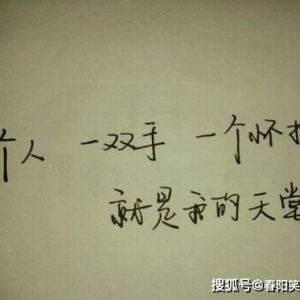 个人 一双手 一个怀
就是我的天堂
搜狐号@春阳笑